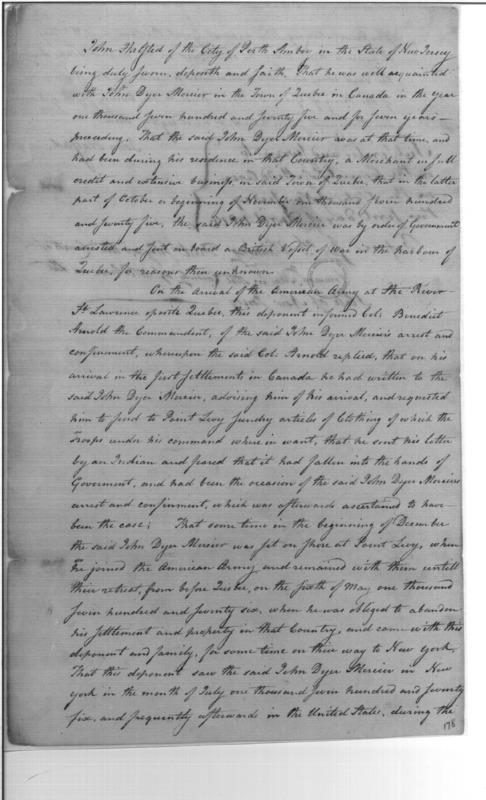 John Halsted of the City of Perth Amboy in the State of New Jersey
being duly sworn, deposeth and saith, That he was well acquainted
with John Dyer Mercier in the Town of Quebec in Canada in the year
one thousand seven hundred and seventy five and for seven years
preceding. That the said John Dyer Mercier was at that time, and
had been during his residence in that Country, a Merchant in full
credit and extensive business, in said Town of Quebec, that in the latter
part of October or beginning of November one thousand seven hundred
and seventy five, the said John Dyer Mercier was by order of Government
arrested and sent on board a British Vessel of War in the harbour of
Quebec, for reasons then unknown.
On the arrival of the American Army at the River
St. Lawrence oposite Quebec, this deponent informed Col: Benedict
Arnold the Commandent, of the said John Dyer Mercier's arrest and
confinment, whereupon the said Col. Arnold replied, that on his
arrival in the first settlements in Canada he had written to the
said John Dyer Mercier, advising him of his arrival, and requested
him to send to Point Levy sundry articles of Clothing of which the
Troops under his command where in want, that he sent his letter
by an Indian and feared that it had fallen into the hands of
Goverment, and had been the occasion of the said John Dyer Mercier's
arrest and confinment, which was afterwards ascertained to have
been the case; That some time in the beginning of December
the said John Dyer Mercier was set on shore at Point Levy, when
he joined the American Army and remained with them untill
their retreat, from before Quebec, on the sixth of May one thousand
seven hundred and seventy six, when he was obliged to abandon
his settlement and property in that Country, and came with this
deponent and family, for some time on their way to New York,
That this deponent saw the said John Dyer Mercier in New
york in the month of July one thousand seven hundred and seventy
six, and frequently afterwards in the United States, during the
178